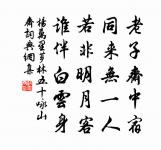 老子齋中宿
同來無一人
若非明月客
誰伴白雲身
楊萬里芗林五十詠山
齋詞典網集